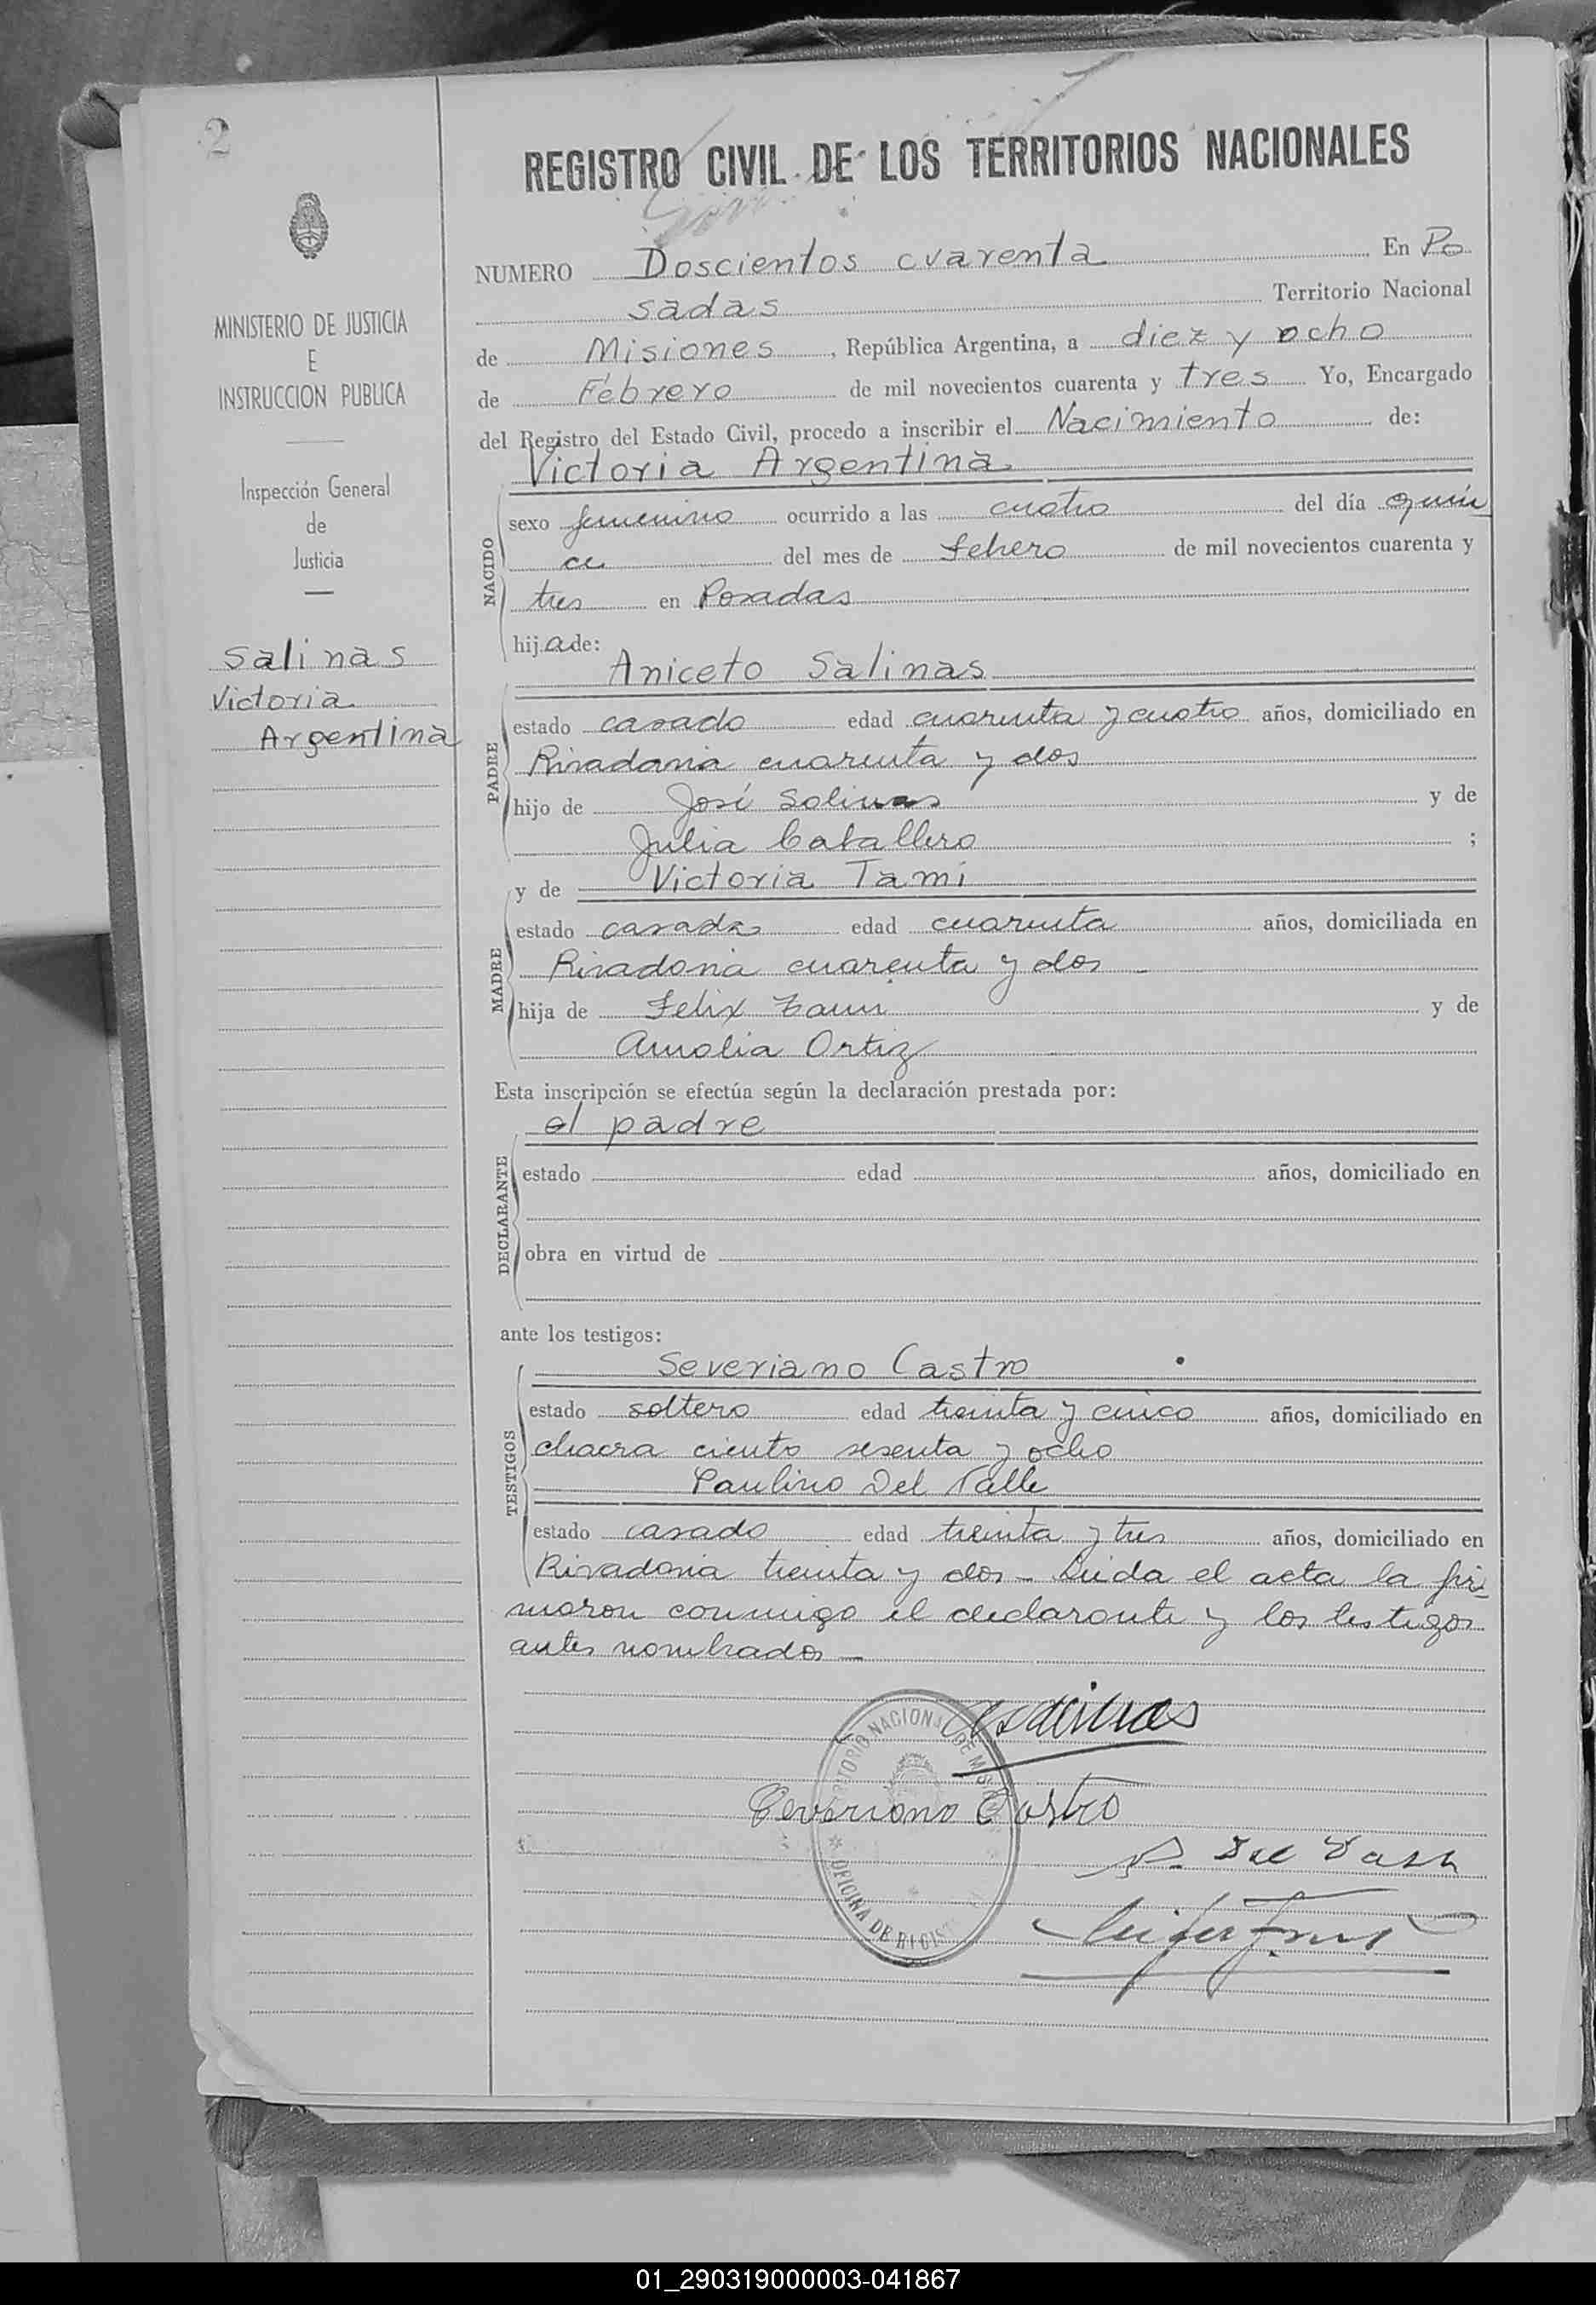 2
REGISTRO CIVIL DE LOS TERRITORIOS NACIONALES
NUMERO Doscientos cuarenta En Po
sadas Territorio Nacional
de Misiones, República Argentina, a diez y ocho
de Febrero de mil novecientos cuarenta y tres Yo, Encargado
del Registro del Estado Civil, procedo a inscribir el Nacimiento de:
Victoria Argentina
NACIDO
sexo femenino ocurrido a las cuatro del día quin
ce del mes de febrero de mil novecientos cuarenta y
tres en Posadas
hija de:
Aniceto Salinas
PADRE
estado casado edad cuarenta y cuatro años, domiciliado en
Rivadavia cuarenta y dos
hijo de José Salinas y de
Julia Caballero ;
y de Victoria Tami
MADRE
estado casada edad cuarenta años, domiciliada en
Rivadavia cuarenta y dos
hija de Felix Tami y de
Amalia Ortiz
Esta inscripción se efectúa según la declaración prestada por:
el padre
DECLARANTE
estado edad años, domiciliado en
obra en virtud de
ante los testigos:
Severiano Castro
TESTIGOS
estado soltero edad treinta y cinco años, domiciliado en
chacra ciento sesenta y ocho
Paulino Del Valle
estado casado edad treinta y tres años, domiciliado en
Rivadavia treinta y dos - Leida el acta la fir
maron conmigo el declarante y los testigos
antes nombrados -
MINISTERIO DE JUSTICIA
E
INSTRUCCION PUBLICA
Inspección General
de
Justicia
Salinas
Victoria
Argentina
Salinas
Severiano Castro
P. Del Valle
OFICINA DE REGIST
01_290319000003-041867